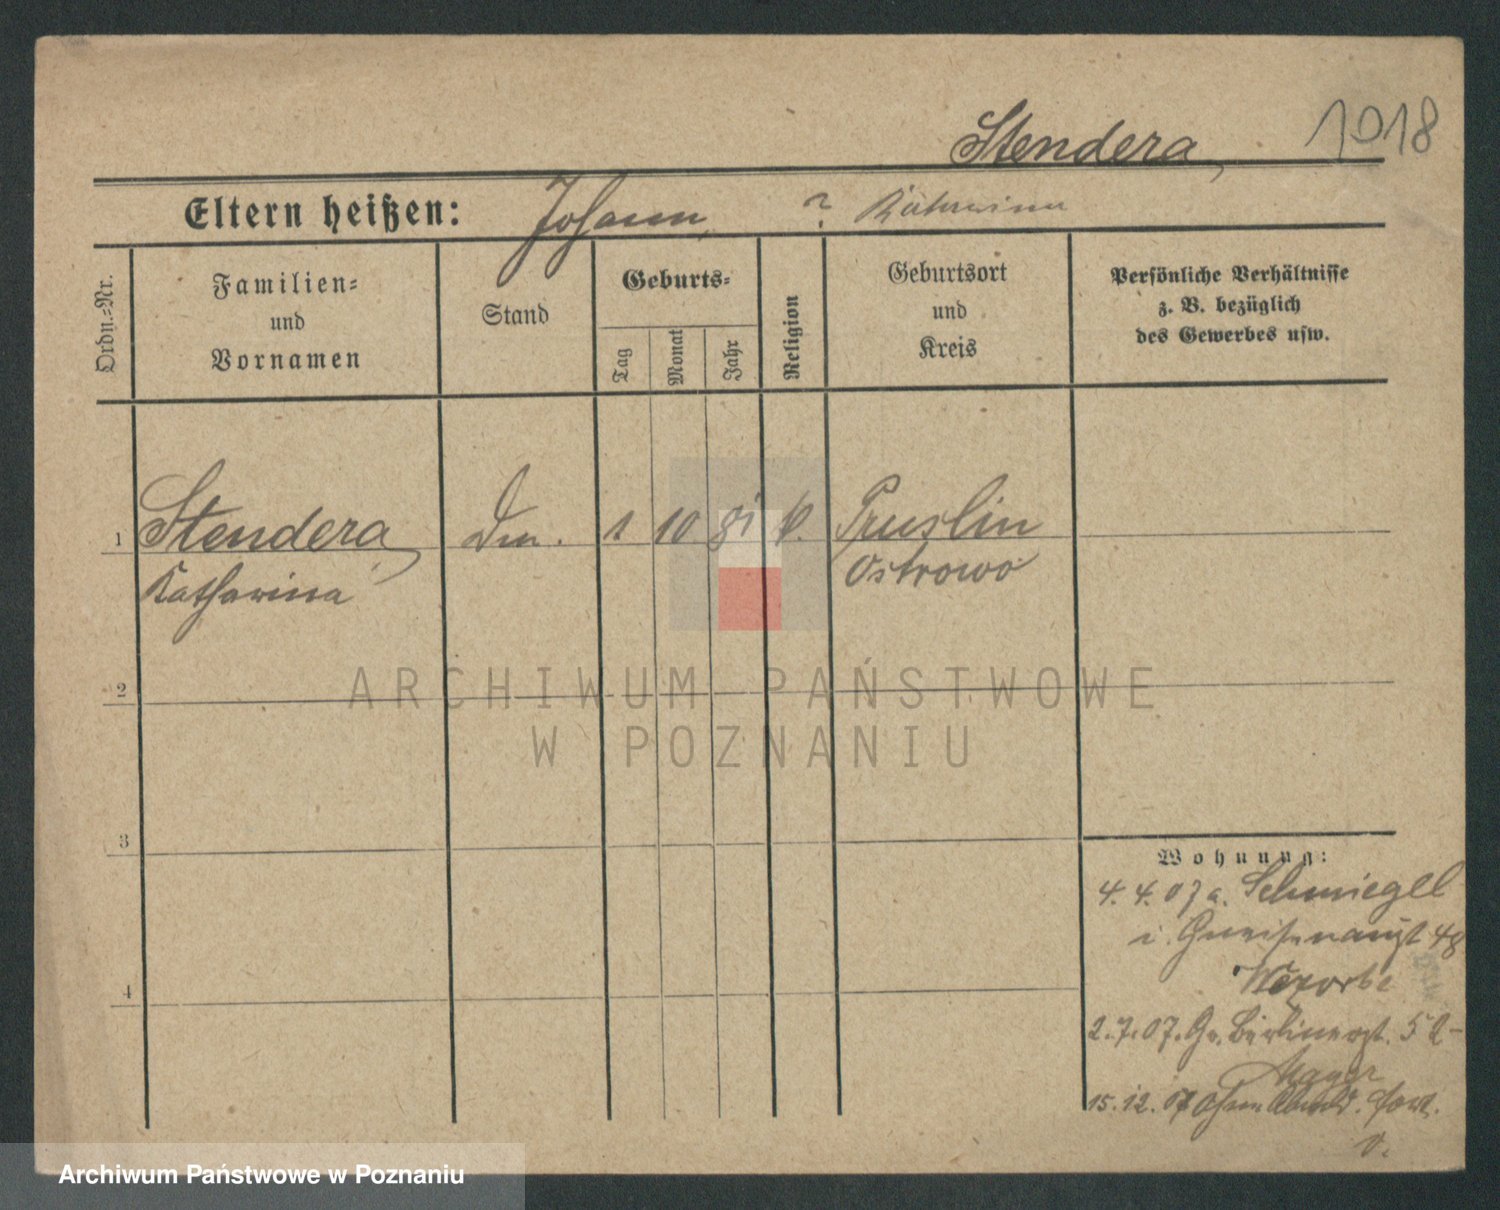 Stendera, 1018
Eltern heißen: Johann, ?
Ordn.-Nr.
Familien-
und
Vornamen
Stand
Geburts-
Tag
Monat
Jahr
Religion
Geburtsort
und
Kreis
Persönliche Verhältnisse
z. B. bezüglich
des Gewerbes usw.
1 Stendera, 1 10 81 k. Pruslin
Katharina Ostrowo
2
ARCHIWUM PAŃSTWOWE
W POZNANIU
3
Wohnung:
4. 4. 07 a. Schmiegel
i. Gneisenaust 48
4
2. 7. 07. Gr. Berlinerst. 52
15. 12. 07
Archiwum Państwowe w Poznaniu